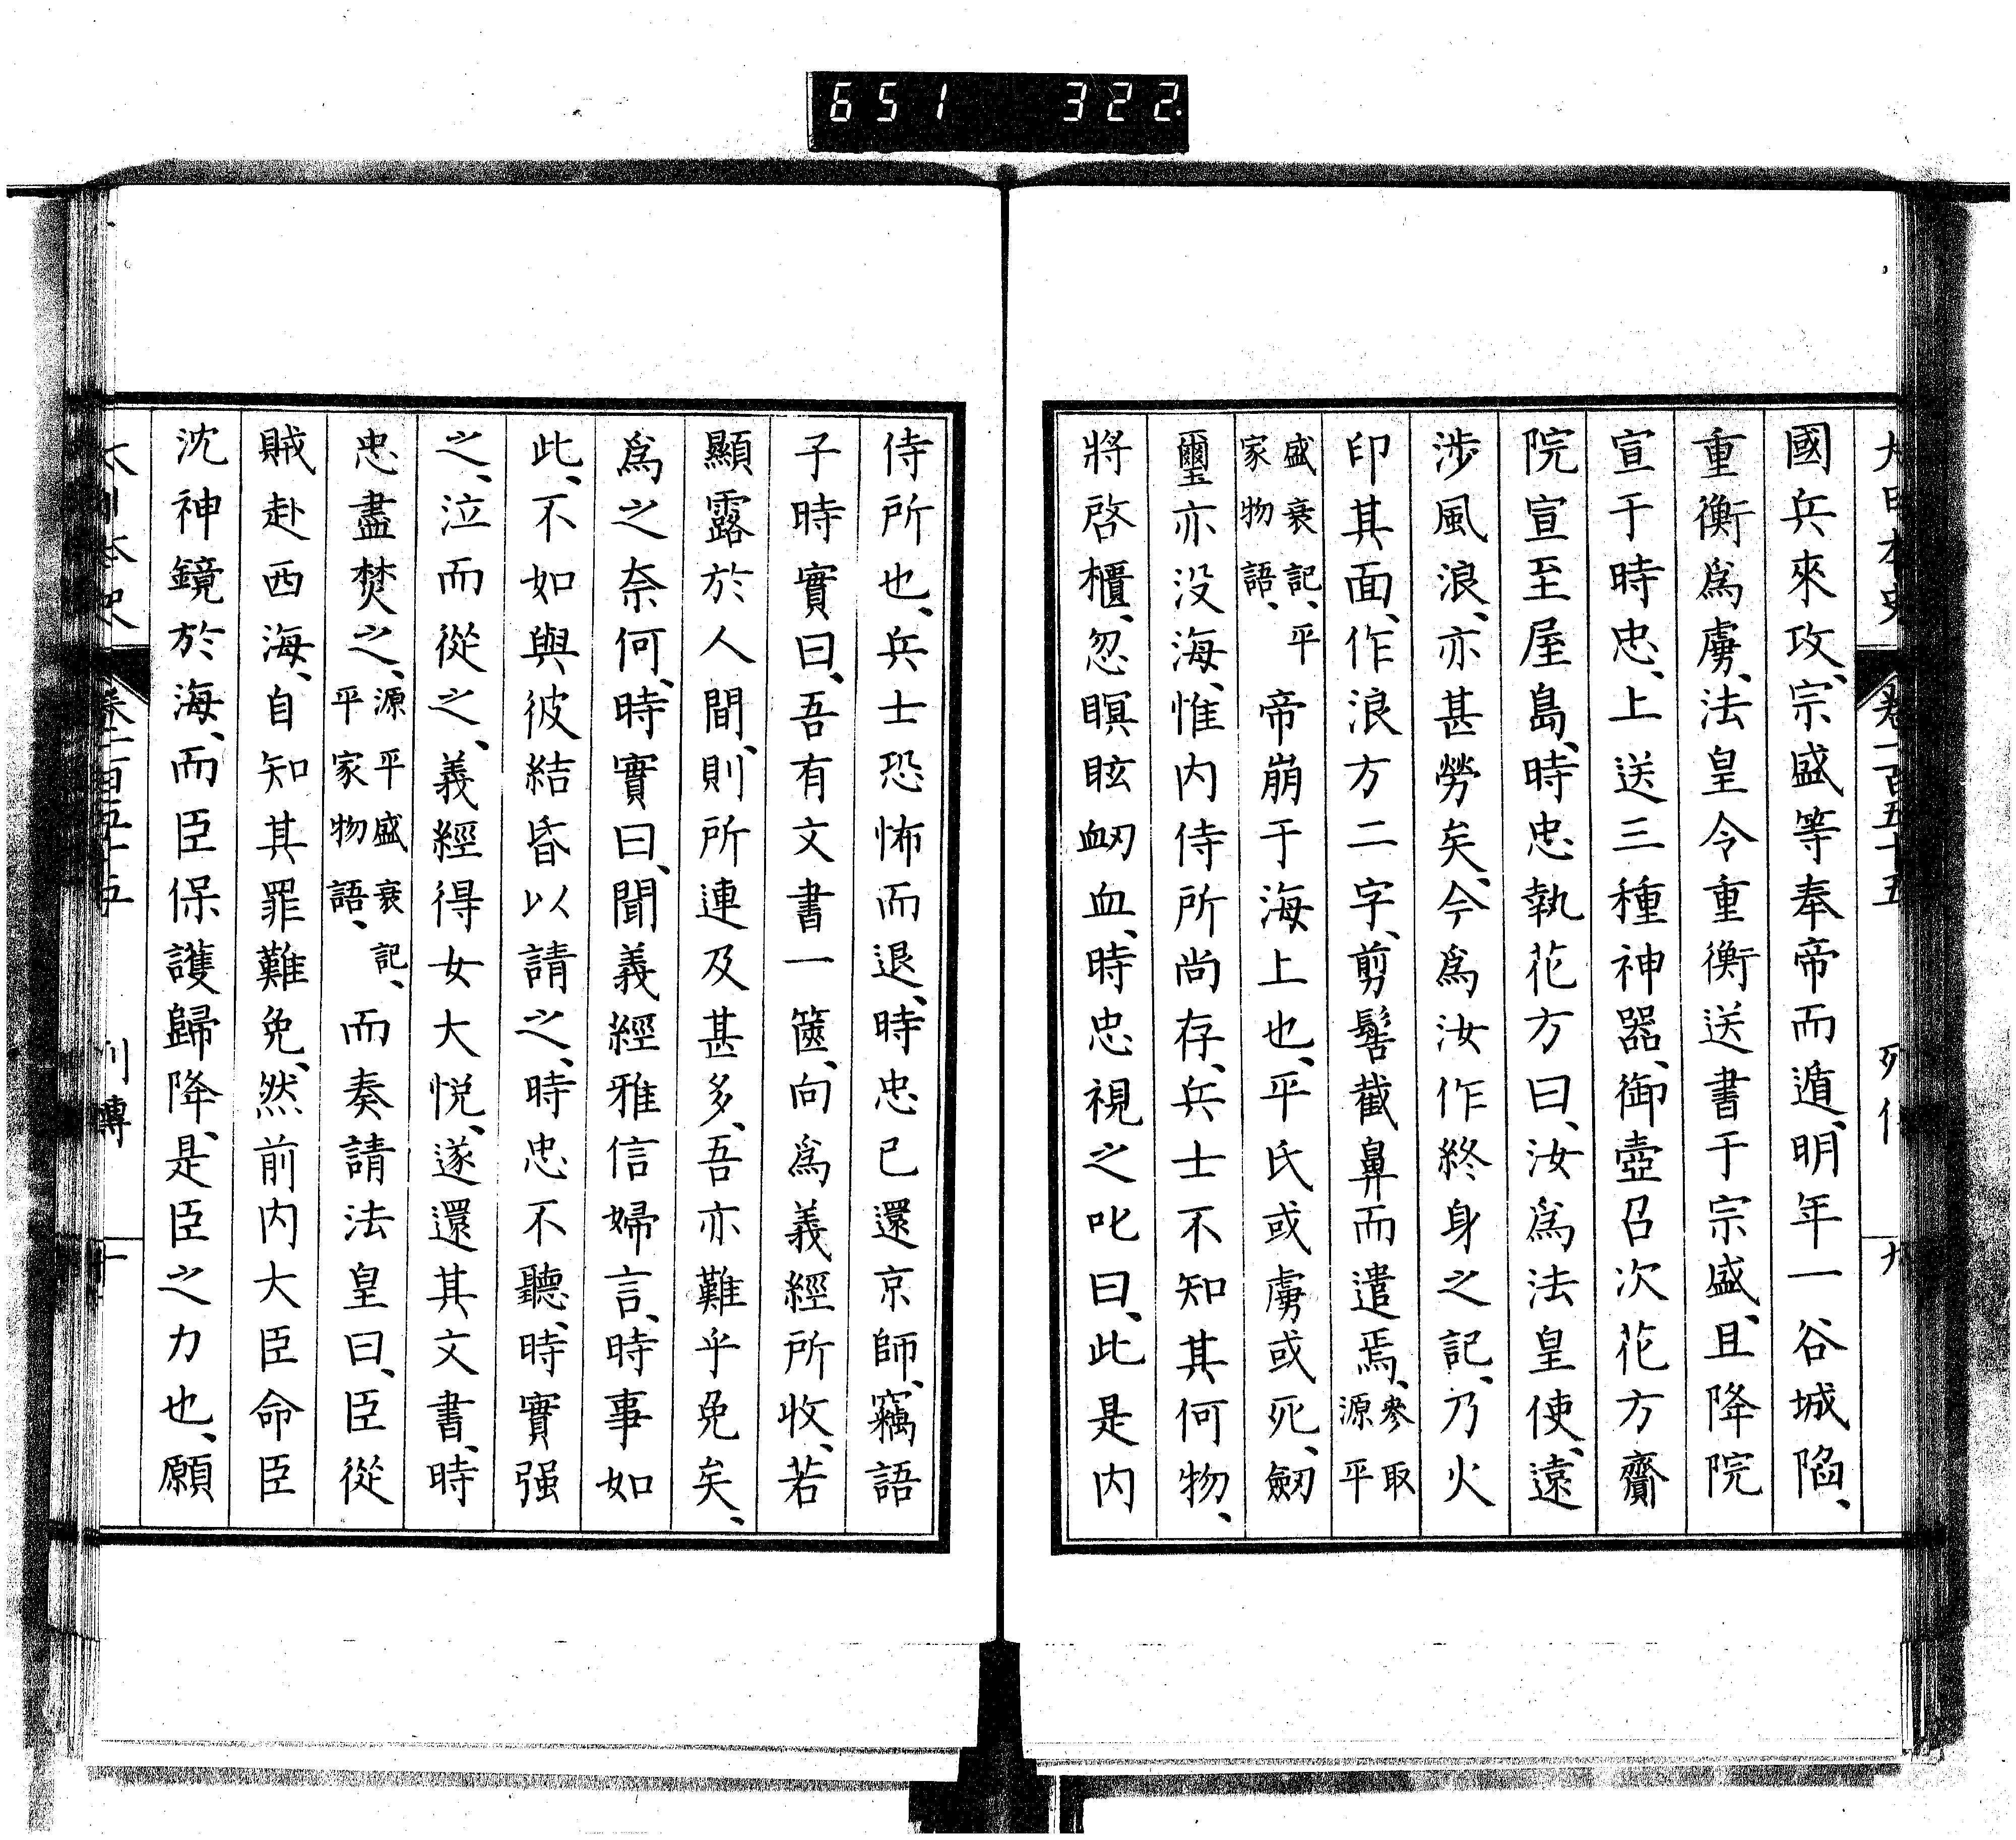 651 322.
大日本史 卷一百五十五 列傳 九
國兵來攻、宗盛等奉帝而遁、明年一谷城陷、
重衡爲虜、法皇令重衡送書于宗盛、且降院
宣于時忠、上送三種神器、御壺召次花方齎
院宣至屋島、時忠執花方曰、汝爲法皇使、遠
涉風浪、亦甚勞矣、今爲汝作終身之記、乃火
印其面、作浪方二字、剪髻截鼻而遣焉、參取源平
盛衰記、平家物語、帝崩于海上也、平氏或虜或死、劒
璽亦没海、惟内侍所尚存、兵士不知其何物、
將啓櫃、忽瞑眩衂血、時忠視之叱曰、此是内
侍所也、兵士恐怖而退、時忠已還京師、竊語
子時實曰、吾有文書一篋、向爲義經所收、若
顯露於人間、則所連及甚多、吾亦難乎免矣、
爲之奈何、時實曰、聞義經雅信婦言、時事如
此、不如與彼結昏以請之、時忠不聽、時實强
之、泣而從之、義經得女大悦、遂還其文書、時
忠盡焚之、源平盛衰記、平家物語、而奏請法皇曰、臣從
賊赴西海、自知其罪難免、然前内大臣命臣
沈神鏡於海、而臣保護歸降、是臣之力也、願
大日本史 卷一百五十五 列傳 十